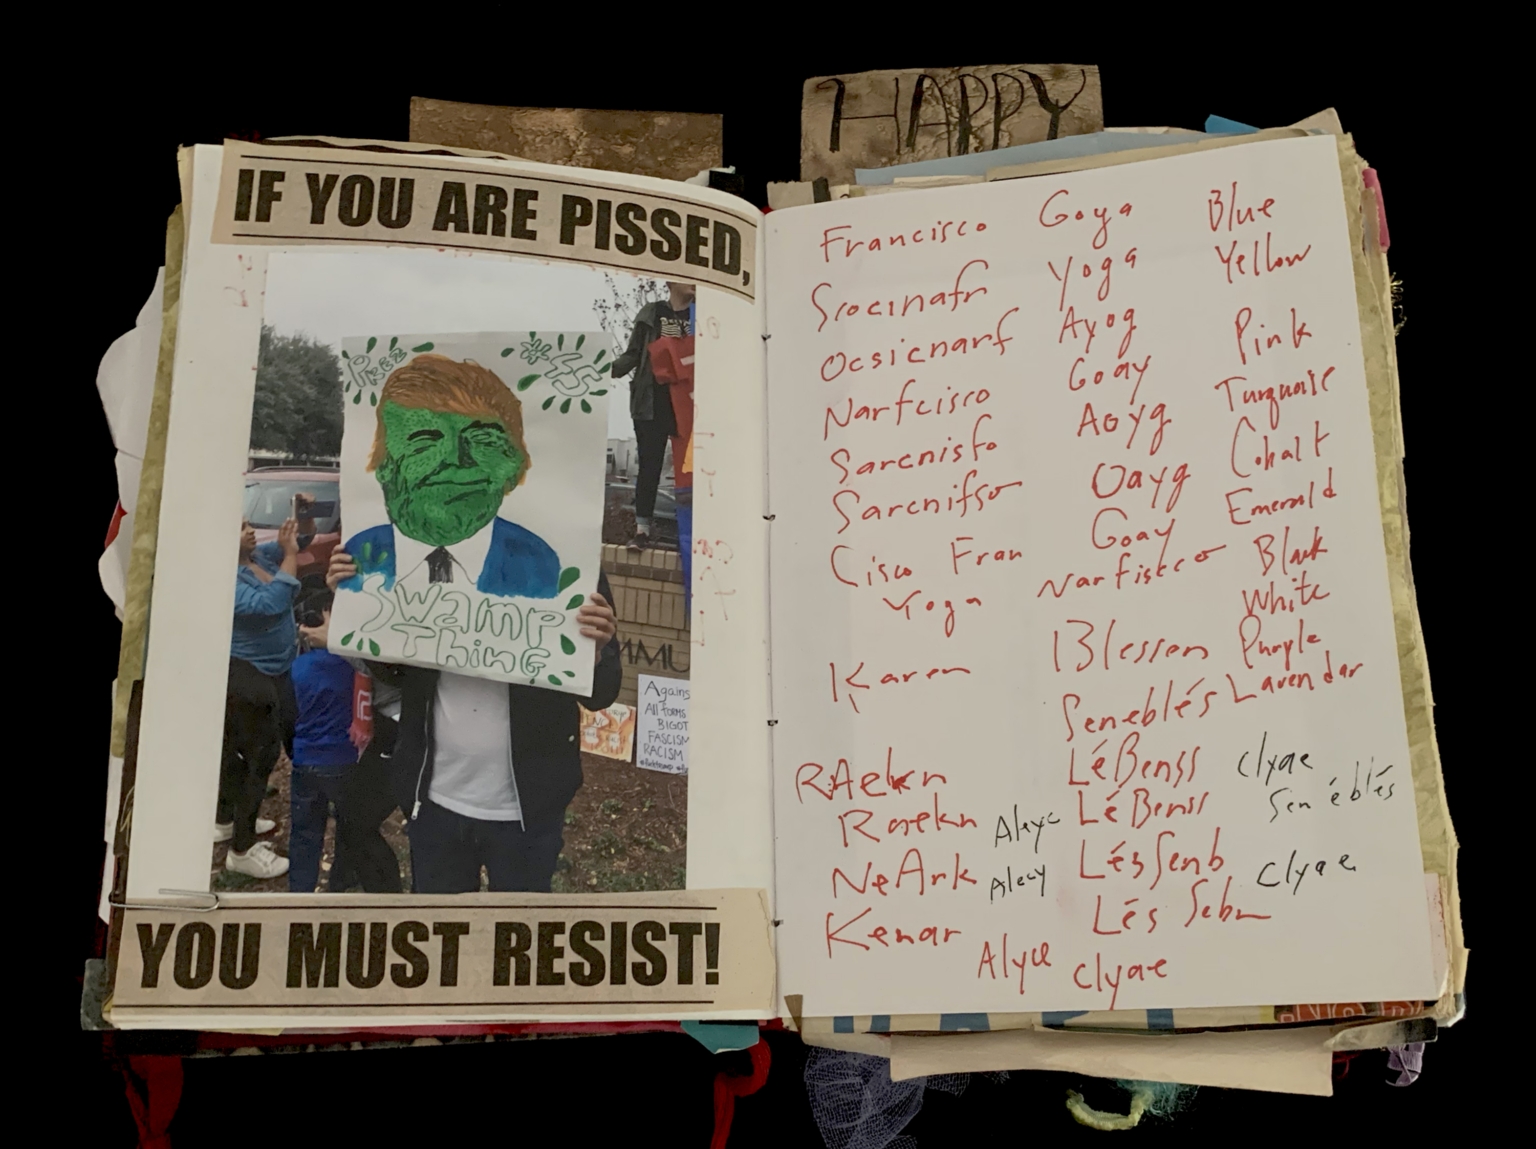 HAPPY
IF YOU ARE PISSED,
Swamp
Thing
Agains
All forms
BIGOT
FASCISM
RACISM
YOU MUST RESIST!
Francisco Goya Blue
Srocinafr Yoga Yellow
Ocsicnarf Ayog Pink
Narfcisco Goay Turquoise
Sarcnisfo Aoyg Cohalt
Sarcnifso Oayg Emerald
Cisco Fran Goay Black
Yoga Narfiscco White
Karen Blessen Purple
Seneblés Lavendar
RAekn LéBenss Clyae
Raekn Alyc LéBenss Senéblés
NeArk Alecy LésSenb Clyae
Kenar Lés Sebn
Alyce Clyae